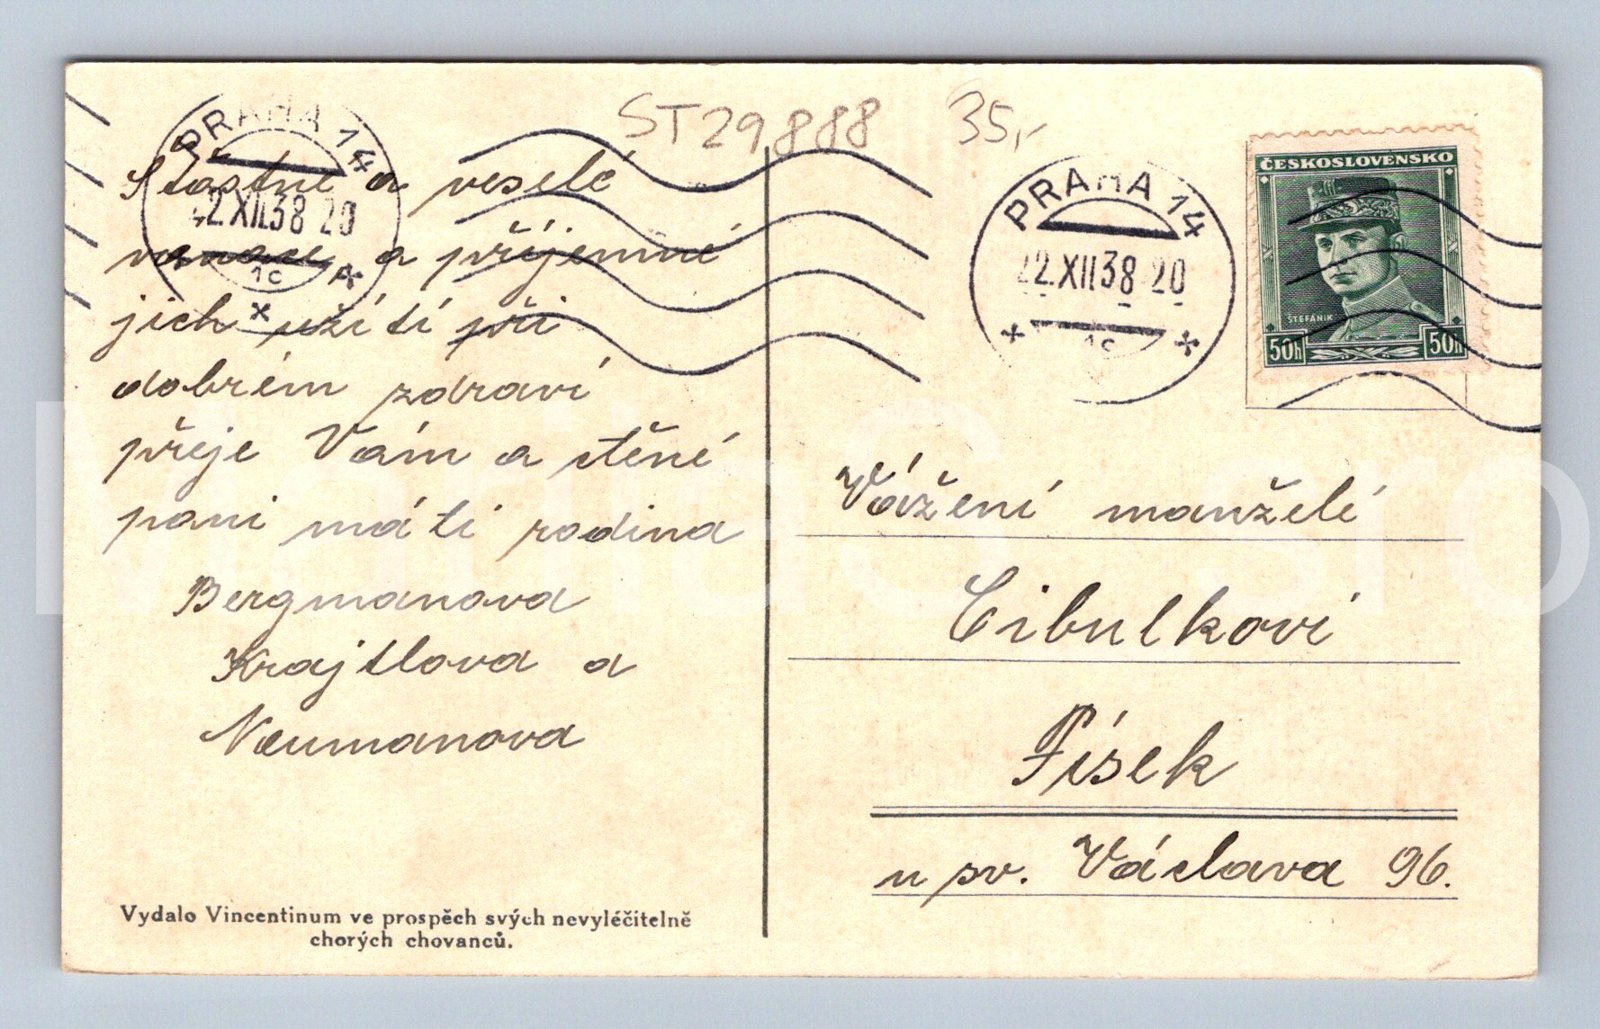 ST29888 35,-
PRAHA 14
22.XII.38 20
1c
Šťastné a veselé
vánoce a příjemné
jich užití při
dobrém zdraví
přeje Vám a ctěné
paní máti rodina
Bergmanova
Krajtlova a
Neumanova
Vydalo Vincentinum ve prospěch svých nevyléčitelně
chorých chovanců.
PRAHA 14
22.XII.38 20
1c
ČESKOSLOVENSKO
ŠTEFÁNIK
50h 50h
Vážení manželé
Cibulkovi
Písek
u sv. Václava 96.